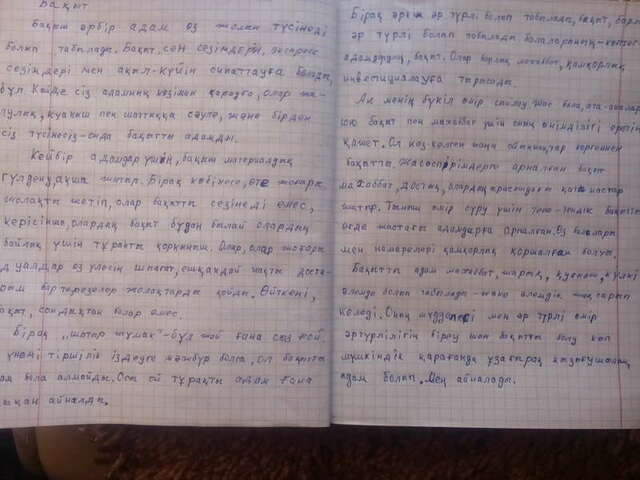 Бақыт
Бақыт әрбір адам өз жолын түсінеді
болып табылады. Бақыт, сән сезімдерін, экспресс
сезімдері мен ақыл-күйін сипаттауға болады,
бұл. Кейде сіз адамның көзімен қараңдо, олар жа-
рулық, қуаныш пен шаттыққа сәуле, және бірден
сіз түсінесіз-сонда бақытты адамды.
Кейбір адамдар үшін, бақыт материалдық
гүлдену, ақша жатыр. Бірақ көбінесе, өте жоғары
жолақты жетіп, олар бақытты сезінеді емес,
керісінше, олардың бақыт бұдан былай олардың
байлық үшін тұрақты қорқыныш. Олар, олар жоғары
дуалдар өз үлесін шығып, ешқандай нақты доста-
рым біртерезелер жолақтарды қойды. Өйткені,
бақыт, сондықтан болар емес.
Бірақ „шатыр жұмақ"-бұл жай ғана сөз ғой.
үнемі тіршілік іздеуге мәжбүр болса, ол бақытты
адам бола алмайды. Осы ой тұрақты адам ғана
айналды.
Бірақ әркім әр түрлі болып табылады, бақыт, барлық
әр түрлі болып табылады балалардың-көптеген
адамдардың, бақыт. Олар барлық махаббат, қамқорлық
инвестициялауға тырысады.
Ал менің бүкіл өмір сыйлау. Жас бала, ата-аналар
ою бақыт пен махаббат үшін оның өнімділігі ерекше
қажет. Ол көз келген жаңа ойыншықтар көргеннен
бақытты. Жасөспірімдерге арналған бақыт
махаббат, достық, олардың арасындағы қатынастар
жатыр. Тыныш өмір сүру үшін тепе-теңдік бақытты
егде жастағы адамдарға арналған. Өз балалары
мен немерелері қамқорлық қоршалған болуы.
Бақытты адам махаббат, жарық, қуаныш, күлкі
әлемде болып табылады-жаңа әлемдік жақсарып
келеді. Оның мүдделі мен әр түрлі өмір
әртүрлілігін біреу шын бақытты болу көп
мүмкіндік қарағанда ұзағырақ қызығушылық
адам болып. Мен айналады.